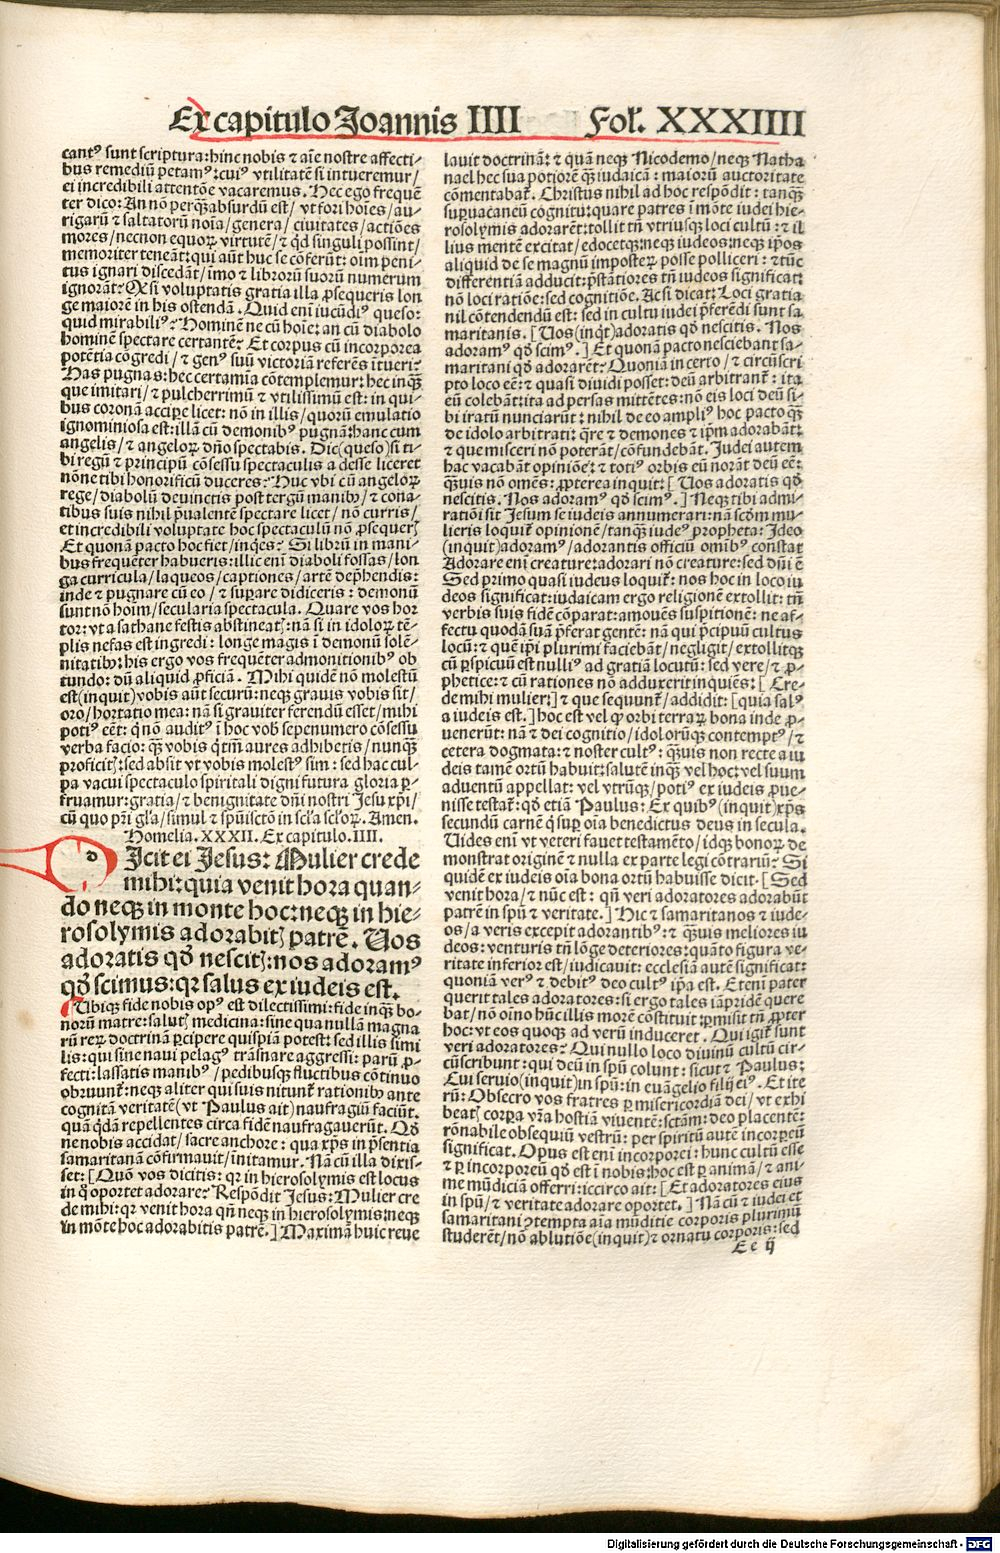 Ex capitulo Joannis IIII Fol. XXXIIII
cantꝰ sunt scriptura: hinc nobis ⁊ aīe nostre affecti⸗
bus remediū petamꝰ: cuiꝰ vtilitatē si intueremur/
ei incredibili attentōe vacaremus. Hec ego frequē
ter dico: An nō perq̄ absurdū est/ vt fori hoīes/ au⸗
rigarū ⁊ saltatorū noīa/ genera/ ciuitates/ actiōes
mores/ necnon equoꝝ virtutē/ ⁊ qd̄ singuli possint/
memoriter teneāt: qui aūt huc se cōferūt: oīm peni⸗
tus ignari discedāt/ īmo ⁊ librorū suorū numerum
ignorāt? Qꝫ si voluptatis gratia illa ꝓsequeris lon
ge maiorē in his ostendā. Quid enī iucūdiꝰ queso:
quid mirabiliꝰ? Hominē ne cū hoīe: an cū diabolo
hominē spectare certantē? Et corpus cū incorporea
potētia cōgredi/ ⁊ genꝰ suū victoriā referēs ītueri?
Has pugnas: hec certamīa cōtemplemur: hec inq̄ꝫ
que imitari/ ⁊ pulcherrimū ⁊ vtilissimū est: in qui⸗
bus coronā accipe licet: nō in illis/ quorū emulatio
ignominiosa est: illā cū demonibꝰ pugnā: hanc cum
angelis/ ⁊ angeloꝝ dño spectabis. Dic (queso) si ti⸗
bi regū ⁊ principū cōsessu spectaculis adesse liceret
nōne tibi honorificū duceres? Huc vbi cū angeloꝝ
rege/ diabolū deuinctis post tergū manibꝰ/ ⁊ cona⸗
tibus suis nihil p̄ualentē spectare licet/ nō curris/
et incredibili voluptate hoc spectaculū nō ꝓsequerꝭ
Et quonā pacto hoc fiet/ inq̄es? Si librū in mani⸗
bus frequēter habueris: illic enī diaboli fossas/ lon
ga curricula/ laqueos/ captiones/ artē dep̄hendis:
inde ⁊ pugnare cū eo/ ⁊ supare didiceris: demonū
sunt nō hoīm/ secularia spectacula. Quare vos hor
tor: vt a sathane festis abstineatꝭ: nā si in idoloꝝ tē⸗
plis nefas est ingredi: longe magis ī demonū solē⸗
nitatibꝰ: his ergo vos frequēter admonitionibꝰ ob
tundo: dū aliquid ꝓficiā. Mihi quidē nō molestū
est (inquit) vobis aūt securū: neqꝫ grauis vobis sit/
oro/ hortatio mea: nā si grauiter ferendū esset/ mihi
potiꝰ eēt: q̄ nō auditꝰ ī hoc vobꝭ sepenumero cōsessu
verba facio: q̄ꝫ vobis q̄tīm aures adhibetis/ nunq̄ꝫ
proficitꝭ: sed absit vt vobis molestꝰ sim: sed hac cul⸗
pa vacui spectaculo spiritali digni futura gloria ꝑ⸗
fruamur: gratia/ ⁊ benignitate dn̄i nostri Jesu xp̄i/
cū quo pr̄i gl̄a/ simul ⁊ spūisctō in scl̄a scl̄oꝝ. Amen.
Homelia. XXXII. Ex capitulo. IIII.
dIcit ei Jesus: Mulier crede
mihi: quia venit hora quan⸗
do neqꝫ in monte hoc: neqꝫ in hie⸗
rosolymis adorabitꝭ patrē. Uos
adoratis qd̄ nescitꝭ: nos adoramꝰ
qd̄ scimus: qꝛ salus ex iudeis est.
Ubique fide nobis opꝰ est dilectissimi: fide inq̄ꝫ bo⸗
norū matre: salutꝭ medicina: sine qua nullā magna
rū reꝝ doctrinā ꝑcipere quispiā potest: sed illis simi
lis: qui sine naui pelagꝰ trāsnare aggressi: parū ꝑ⸗
fecti: lassatis manibꝰ/ pedibusqꝫ fluctibus cōtinuo
obruunt᷑: neqꝫ aliter qui suis nitunt᷑ rationibꝰ ante
cognitā veritatē (vt Paulus ait) naufragiū faciūt.
quā q̄dā repellentes circa fidē naufragauerūt. Qd̄
ne nobis accidat/ sacre anchore: qua xp̄s in p̄sentia
samaritanā cōfirmauit/ īnitamur. Nā cū illa dixis⸗
set: [Quō vos dicitis: qꝛ in hierosolymis est locus
in q̄ oportet adorare? Respōdit Jesus: Mulier cre
de mihi: qꝛ venit hora qn̄ neqꝫ in hierosolymis: neqꝫ
in mōte hoc adorabitis patrē.] Maximā huic reue
lauit doctrinā: ⁊ quā neqꝫ Nicodemo/ neqꝫ Natha
nael hec sua potiorē q̄ꝫ iudaicā: maiorū auctoritate
cōmentabat᷑. Christus nihil ad hoc respōdit: tanq̄ꝫ
supuacaneū cognitu: quare patres ī mōte iudei hie⸗
rosolymis adorarēt: tollit tn̄ vtriusqꝫ loci cultū: ⁊ il
lius mentē excitat/ edocetqꝫ: neqꝫ iudeos: neqꝫ ip̄os
aliquid de se magnū imposteꝝ posse polliceri: ⁊ tūc
differentiā adducit: p̄stātiores tn̄ iudeos significat:
nō loci ratiōe: sed cognitiōe. Ac si dicat: Loci gratia
nil cōtendendū est: sed in cultu iudei p̄ferēdi sunt sa
maritanis. [Uos (inq̄t) adoratis qd̄ nescitis. Nos
adoramꝰ qd̄ scimꝰ.] Et quonā pacto nesciebant sa⸗
maritani qd̄ adorarēt? Quoniā incerto/ ⁊ circūscri
pto loco eē: ⁊ quasi diuidi posset: deū arbitrant᷑: ita
eū colebāt: ita ad persas mittētes: nō eis loci deū si⸗
bi iratū nunciarūt: nihil de eo ampliꝰ hoc pacto q̄ꝫ
de idolo arbitrati: q̄re ⁊ demones ⁊ ip̄m adorabāt:
⁊ que misceri nō poterāt/ cōfundebāt. Judei autem
hac vacabāt opiniōe: ⁊ totiꝰ orbis eū norāt deū eē:
q̄ꝫuis nō omēs: ꝓpterea inquit: [Uos adoratis qd̄
nescitis. Nos adoramꝰ qd̄ scimꝰ.] Neqꝫ tibi admi⸗
ratiōi sit Jesum se iudeis annumerari: nā scd̄m mu⸗
lieris loquit᷑ opinionē/ tanq̄ꝫ iudeꝰ propheta: Ideo
(inquit) adoramꝰ/ adorantis officiū omībꝰ constat
Adorare enī creature: adorari nō creature: sed dn̄i ē
Sed primo quasi iudeus loquit᷑: nos hoc in loco iu
deos significat: iudaicam ergo religionē extollit: tn̄
verbis suis fidē cōparat: amouēs suspitionē: ne af⸗
fectu quodā suā p̄ferat gentē: nā qui p̄cipuū cultus
locū: ⁊ quē ip̄i plurimi faciebāt/ negligit/ extollitqꝫ
cū ꝑspicuū est nulliꝰ ad gratiā locutū: sed vere/ ⁊ ꝓ⸗
phetice: ⁊ cū rationes nō adduxerit inquiēs: [Cre⸗
de mihi mulier:] ⁊ que sequunt᷑/ addidit: [quia salꝰ
a iudeis est.] hoc est vel qꝫ orbi terraꝝ bona inde ꝓ⸗
venerūt: nā ⁊ dei cognitio/ idolorūqꝫ contemptꝰ/ ⁊
cetera dogmata: ⁊ noster cultꝰ: q̄ꝫuis non recte a iu
deis tamē ortū habuit: salutē inq̄ꝫ vel hoc: vel suum
aduentū appellat: vel vtrūqꝫ/ potiꝰ ex iudeis ꝓue⸗
nisse testat᷑: qd̄ etiā Paulus: Ex quibꝰ (inquit) xp̄s
secundū carnē q̄ sup oīa benedictus deus in secula.
Uides enī vt veteri fauet testamēto/ idqꝫ bonoꝝ de
monstrat originē ⁊ nulla ex parte legi cōtrariū? Si
quidē ex iudeis oīa bona ortū habuisse dicit. [Sed
venit hora/ ⁊ nūc est: qn̄ veri adoratores adorabūt
patrē in spū ⁊ veritate.] Hic ⁊ samaritanos ⁊ iude⸗
os/ a veris excepit adorantibꝰ: ⁊ q̄ꝫuis meliores iu
deos: venturis tn̄ lōge deteriores: quāto figura ve⸗
ritate inferior est/ iudicauit: ecclesiā autē significat:
quoniā verꝰ ⁊ debitꝰ deo cultꝰ ip̄a est. Etenī pater
querit tales adoratores: si ergo tales iāpridē quere
bat/ nō oīno hūc illis morē cōstituit: ꝑmisit tn̄ ꝓpter
hoc: vt eos quoqꝫ ad verū induceret. Qui igit᷑ sunt
veri adoratores? Qui nullo loco diuinū cultū cir⸗
cūscribunt: qui deū in spū colunt: sicut ⁊ Paulus:
Cui seruio (inquit) in spū: in euāgelio filij eiꝰ. Et ite
rū: Obsecro vos fratres ꝑ misericordiā dei/ vt exhi
beatꝭ corpa vr̄a hostiā viuentē: sctām: deo placentē:
rōnabile obsequiū vestrū: per spiritū autē incorpeū
significat. Opus est enī incorporei: hunc cultū esse
⁊ ꝑ incorporeū qd̄ est ī nobis: hoc est ꝑ animā/ ⁊ ani⸗
me mūdiciam offerri: iccirco ait: [Et adoratores eius
in spū/ ⁊ veritate adorare oportet.] Nā cū ⁊ iudei et
samaritani ꝯtempta aīa mūditie corporis plurimū
studerēt/ nō ablutiōe (inquit) ⁊ ornatu corporis: sed
Ee ij
Digitalisierung gefördert durch die Deutsche Forschungsgemeinschaft - DFG